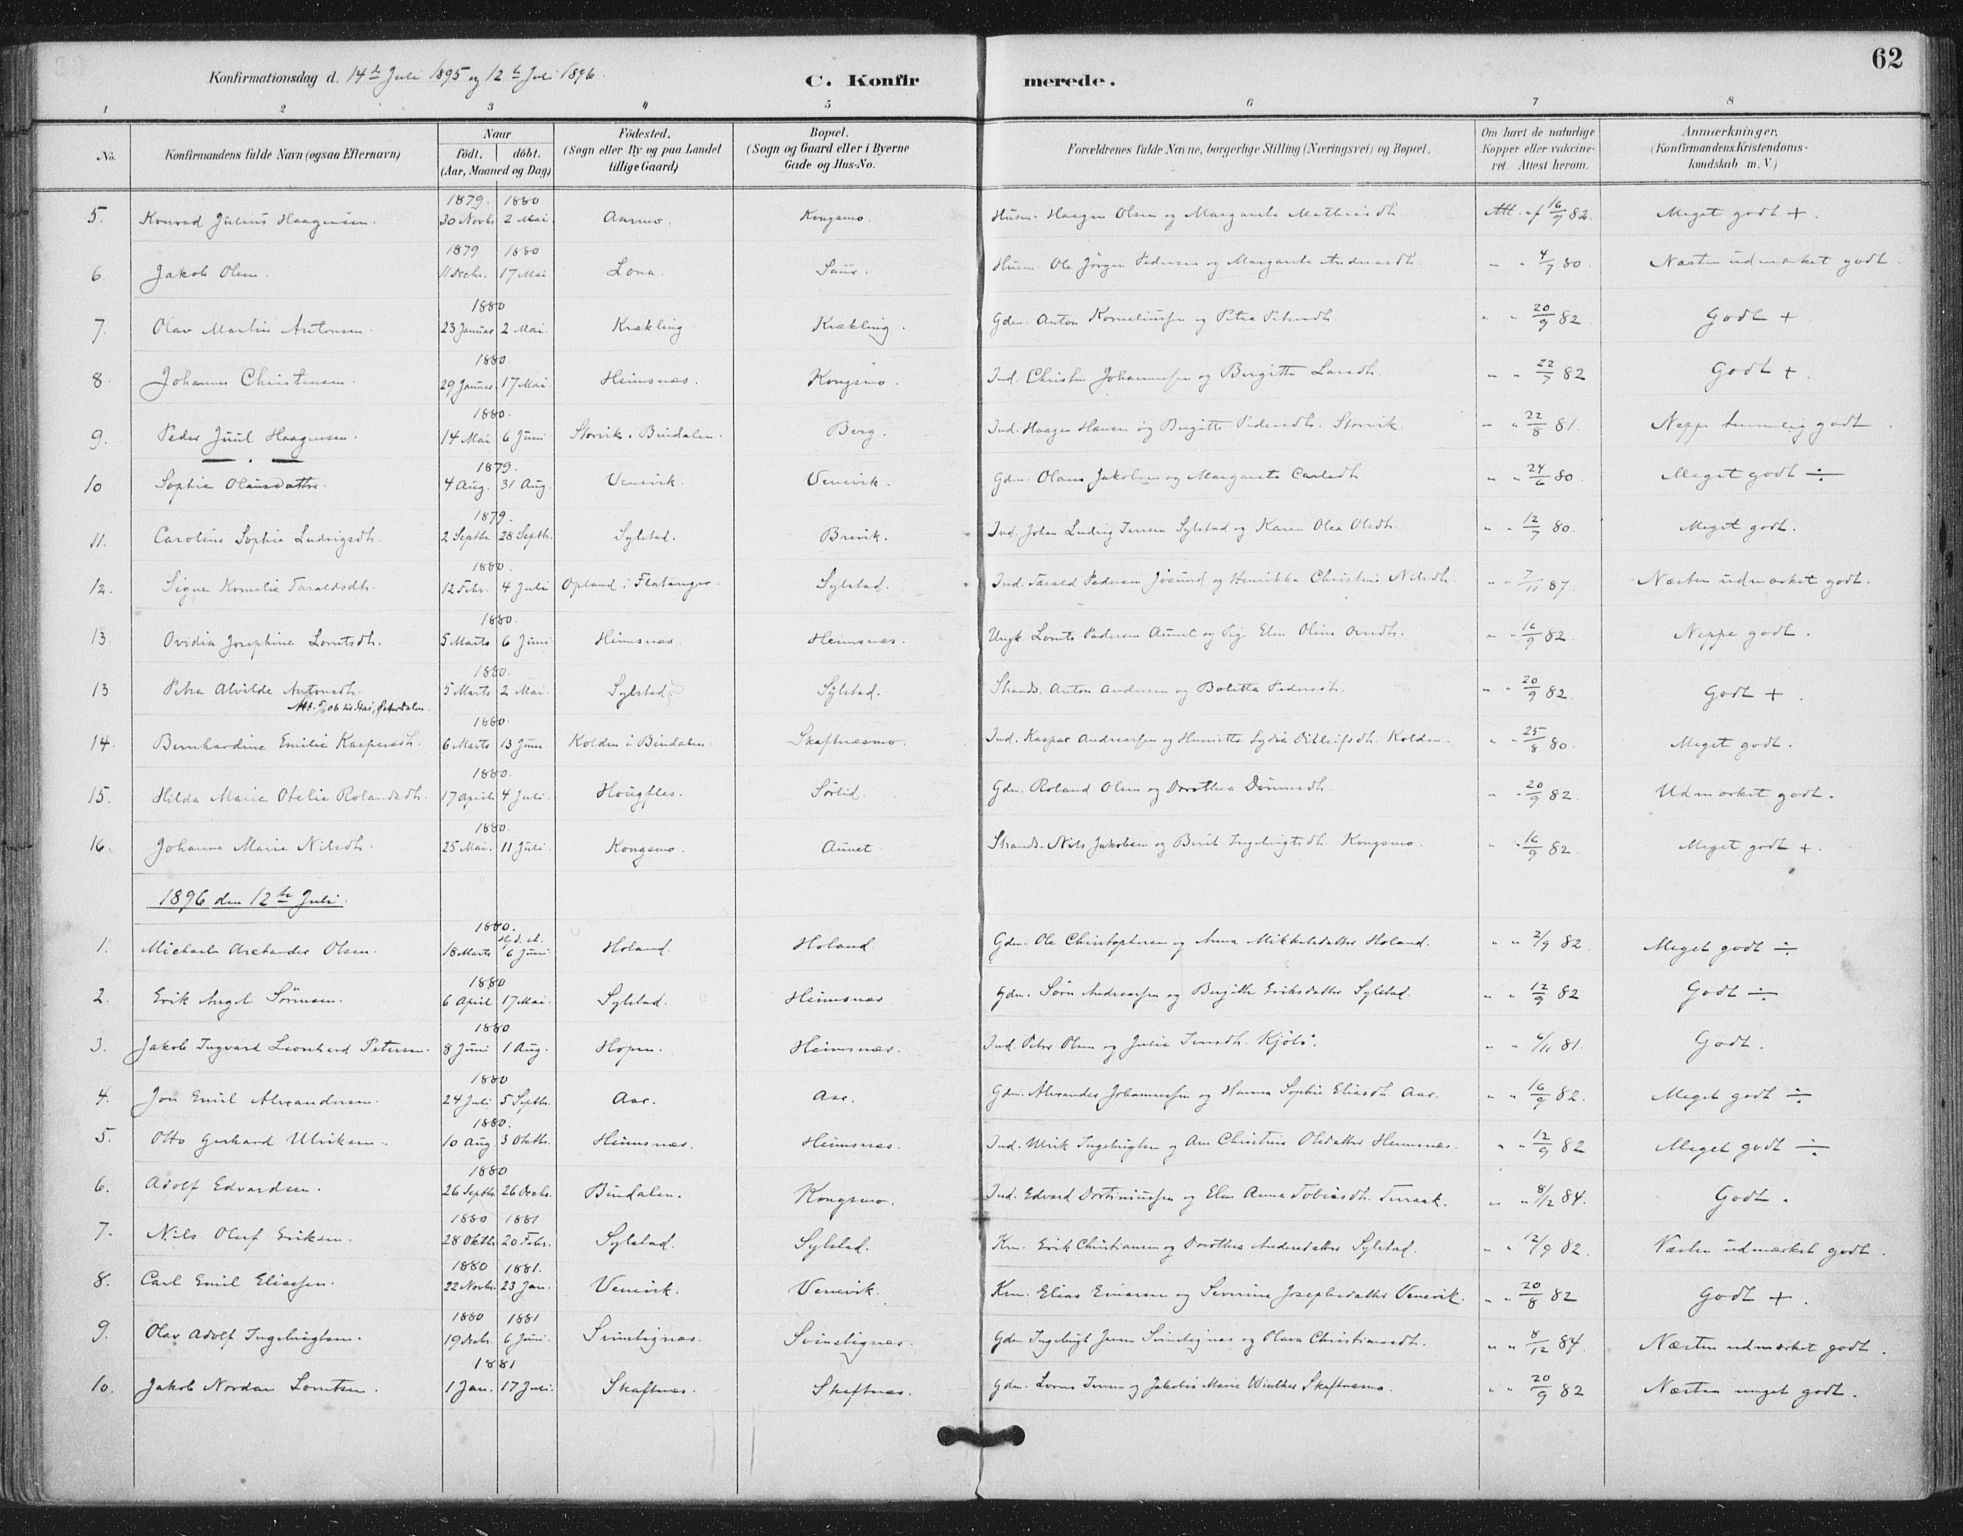 62
Konfirmationsdag d. 14de Juli 1895 og 12te Juli 1896.
C. Konfirmerede.
1 2 3 4 5 6 7 8
No. Konfirmandens fulde Navn (ogsaa Efternavn) Naar födt. döbt. (Aar, Maaned og Dag) Födested. (Sogn eller By og paa Landet tillige Gaard) Bopæl. (Sogn og Gaard eller i Byerne Gade og Hus-No. Forældrenes fulde Navne, borgerlige Stilling (Næringsvei) og Bopæl. Om havt de naturlige Kopper eller vakcineret. Attest herom. Anmærkninger. (Konfirmandens Kristendomskundskab m. V.)
5. Konrad Julius Haagensen. 1879. 30 Novbr. 1880 2 Mai. Aarmo. Kongsmo. Husm. Haagen Olsen og Margareta Mathiasdtr. Att. af 16/9 82. Meget godt +.
6. Jakob Olsen. 1879 11 Decbr. 1880 17 Mai Lona. Saur. Husm. Ole Jörgen Pedersen og Margareta Andersdtr. " " 4/7 80. Næsten udmærket godt.
7. Olav Martin Antonsen. 1880 23 Januar 2 Mai. Krækling Krækling. Gdm. Anton Korneliussen og Petra Petersdtr. " " 20/9 82 Godt +
8. Johannes Christensen. 1880. 29 Januar 17 Mai. Heimsnæs. Kongsmo. Ind. Christen Johannessen og Bergitte Larsdtr. " " 22/7 82 Godt +.
9. Peder Juul Haagensen. 1880. 14 Mai 6 Juni Storvik i Bindalen. Berg. Ind. Haagen Hansen og Birgitte Pedersdtr. Storvik " " 22/8 81. Neppe temmelig godt
10 Sophie Olausdatter. 1879. 4 Aug. 31 Aug. Venevik. Venevik. Gdm. Olaus Jakobsen og Margareta Carlsdtr. " " 24/6 80. Meget godt ÷
11. Caroline Sophie Ludvigsdtr. 1879. 2 Septbr. 28 Septbr. Sylstad. Brevik. Ind. Johan Ludvig Jensen Sylstad og Karen Olea Olsdtr. " " 12/7 80. Meget godt.
12. Signe Kornelie Taraldsdtr. 1880. 12 Febr. 4 Juli Opland i Flatanger. Sylstad. Ind. Tarald Pedersen Jøsund og Henrikka Christine Nilsdtr. " " 7/11 87. Næsten udmærket godt.
13. Ovidia Josephine Lorntsdtr. 1880. 5 Marts 6 Juni Heimsnæs. Heimsnæs. Ungk. Lornts Pedersen Aunet og Pig. Elen Oline Arndtr. " " 16/9 82 Neppe godt.
13 Petra Alvilde Antonsdtr. 1880. 5 Marts 2 Mai. Sylstad. Sylstad. Strands. Anton Andersen og Boletta Pedersdtr. " " 20/9 82. Godt +.
14. Bernhardine Emilie Kaspersdtr. 1880. 6 Marts 13 Juni Kolden i Bindalen. Skaftnæsmo. Ind. Kaspar Andreassen og Henriette Lydia Ditlefsdtr. Kolden. " " 25/8 80. Meget godt.
15. Hilda Marie Otelie Rolandsdtr. 1880. 17 April 4 Juli. Hougfles. Sörlid. Gdm. Roland Olsen og Dorothea Dönnesdtr. " " 20/9 82. Udmærket godt.
16. Johanna Marie Nilsdtr. 1880. 25 Mai. 11 Juli. Kongsmo. Aunet Strands. Nils Jakobsen og Berit Ingebrigtsdtr. Kongsmo. " " 16/9 82. Meget godt +.
1896 den 12te Juli.
1. Michael Olsen. 1880. 18 Marts 6 Juni Holand. Holand Gdm. Ole Christophersen og Anna Mikkelsdatter Holand. " " 2/9 82. Meget godt ÷
2. Erik Angel Sörensen. 1880 6 April 17 Mai. Sylstad. Heimsnæs Gdm. Sörn Andreassen og Bergitte Eriksdatter Sylstad. " " 12/9 82 Godt ÷
3. Jakob Ingvard Leonhard Petersen. 1880 8 Juni 1 Aug. Hopen. Heimsnæs. Ind. Peter Olsen og Julie Jensdtr. " " 6/11 81. Godt.
4. Jon Emil Alexandersen. 1880 24 Juli 5 Septbr. Aar. Aar. Gdm. Alexander Johannessen og Hanna Sophie Eliasdtr. Aar. " " 16/9 82. Meget godt ÷
5. Otto Gerhard Ulriksen. 1880. 10 Aug. 3 Oktbr. Heimsnæs. Heimsnæs. Ind. Ulrik Ingebrigtsen og Ane Christine Olsdatter Heimsnæs. " " 12/9 82 Meget godt ÷
6. Adolf Edvardsen. 1880 26 Septbr 26 Decbr. Bindalen. Kongsmo. Ind. Edvard Dortiniussen og Elen Anna Tobiasdtr. Terraak. " " 8/12 84. Godt.
7. Nils Oluf Eriksen. 1880 28 Oktbr. 1881 20 Febr. Sylstad. Sylstad. Km. Erik Christiansen og Dorothea Andersdatter Sylstad. " " 12/9 82. Næsten udmærket godt.
8. Carl Emil Eliassen. 1880 22 Novbr. 1881. 23 Jan. Venevik. Venevik. Km. Elias Einersen og Severine Josephsdatter Venevik. " " 20/8 82 Godt +.
9. Olav Adolf Ingebrigtsen. 1880 19 Decbr. 1881 6 Juni. Svinstignæs. Svinstignæs. Gdm. Ingebrigt Jensen Svinstignæs og Olava Christiansdtr. " " 8/12 84. Næsten udmærket godt.
10. Jakob Nordan Lorntsen. 1881 1 Jan. 17 Juli. Skaftnæs. Skaftnæs. Gdm. Lorns Jensen og Jakobine Marie Winther Skaftnæsmo. " " 20/9 82 Næsten meget godt.